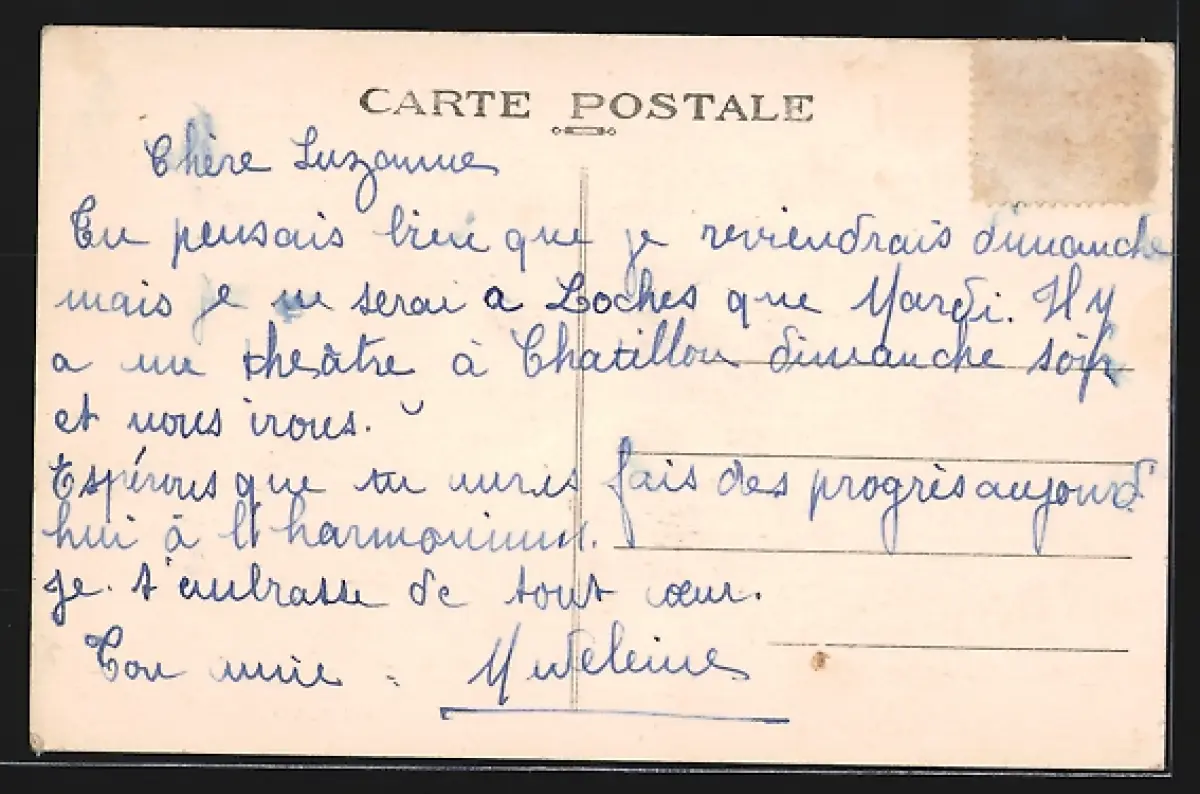 CARTE POSTALE
Chère Suzanne
Tu pensais bien que je reviendrais dimanche
mais je ne serai a Loches que Mardi. Il y
a un théâtre à Chatillon dimanche soir
et nous irons.
Espérons que tu auras fais des progrès aujourd'
hui à l'harmonium.
Je t'embrasse de tout cœur.
Ton amie. Madeleine